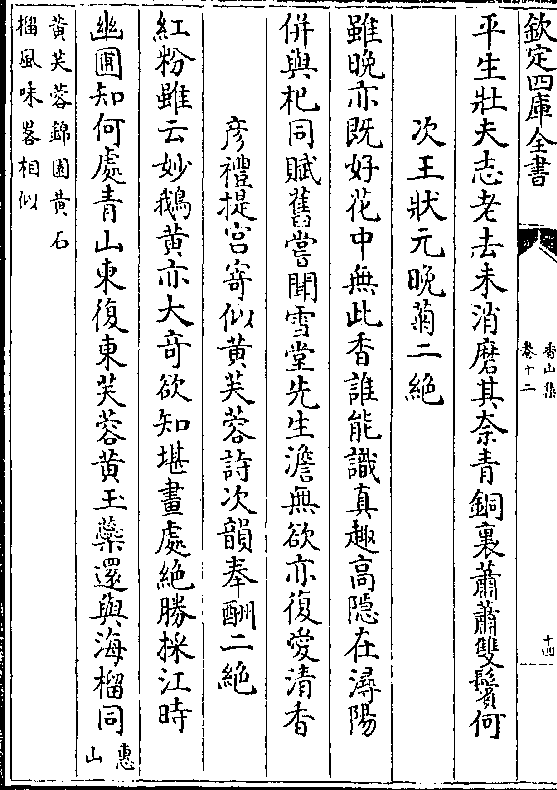 欽定四庫全書
香山集
卷十二
十四
平生壯夫志老去未消磨其奈青銅裏蕭蕭雙鬢何
次王狀元晚菊二絶
雖晚亦既好花中無此香誰能識真趣高隠在潯陽
併與杞同賦舊嘗聞雪堂先生澹無欲亦復愛清香
彦禮提宫寄似黄芙蓉詩次韻奉酬二絶
紅粉雖云妙鵝黄亦大竒欲知堪畫處絶勝採江時
幽圃知何處青山東復東芙蓉黄玉蘂還與海榴同惠山
黄芙蓉錦園黄石
榴風味畧相似